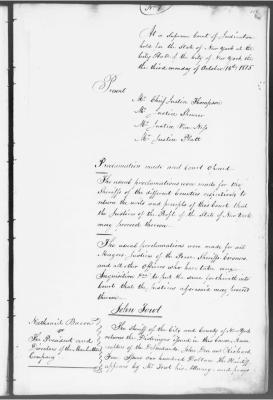 At a Supreme Court of Judicature
held for the State of New York at the
City Hall of the City of New York the
the third monday of October 16th 1815
Present
Mr Chief Justice Thompson
Mr Justice Spencer
Mr Justice Van Ness
Mr Justice Platt
Proclamation made and Court opened
The usual proclamations were made for the
Sheriffs of the different Counties respectively to
return the writs and precepts of this Court that
the Justices of the People of the State of New York
may proceed thereon
The usual proclamations were made for all
Mayors, Justices of the Peace, Sheriffs, Coroners
and all other officers who have taken any
Inquisition to let the same forthwith into
Court that the Justices aforesaid may proceed
thereon
John
Nathaniel Bacon
vs
The President and
Directors of the Manhattan
Company
The Sheriff of the City and County of New York
returns the in this Cause
of the Defendants John and Richard
one hundred Dollars The Plaintiff
appears by Mr his Attorney and prays